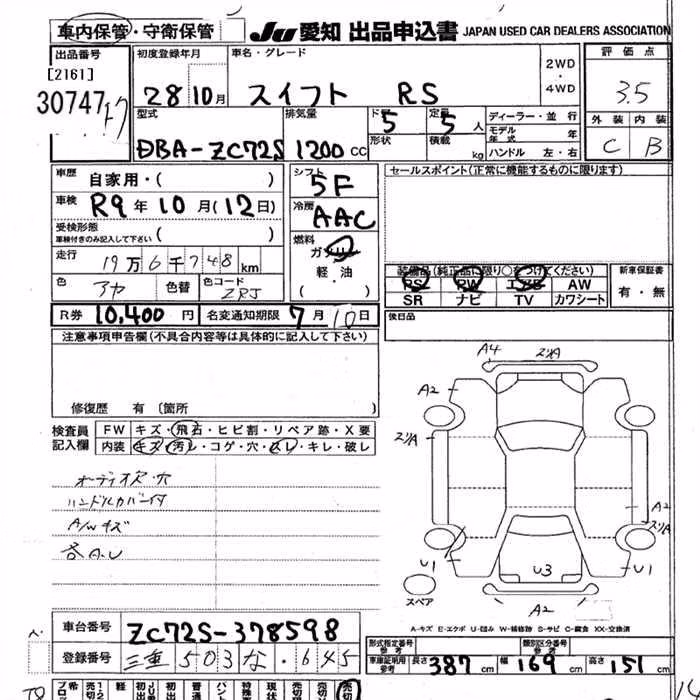 車内保管・守衛保管 JU 愛知 出品申込書 JAPAN USED CAR DEALERS ASSOCIATION
出品番号 初度登録年月 車名・グレード 2WD・4WD 評価点
[2161]
30747 28 10月 スイフト RS 3.5
型式 排気量 ドア 5 定員 5人 ディーラー・並行 外装 内装
モデル年式 年
DBA-ZC72S 1200cc 形状 積載 kg ハンドル 左・右 C B
車歴 自家用・( ) シフト 5F セールスポイント(正常に機能するものに限ります)
車検 R9年10月(12日) 冷房 AAC
受検形態
車検付きのみ記入して下さい ( ) 燃料 ガソリン
走行 19万6千748km 軽・油 装備品(純正品に限り○をつけてください) 新車保証書
色 アカ 色替 色コード ZRJ ( ) PS PW エアB AW 有・無
SR ナビ TV カワシート
R券 10,400円 名変通知期限 7月10日 後日品
注意事項申告欄(不具合内容等は具体的に記入して下さい)
修復歴 有 〔箇所 〕
検査員記入欄 FW キズ・飛石・ヒビ割・リペア跡・X要
内装 キズ・汚レ・コゲ・穴・スレ・キレ・破レ
オーディオ欠・穴
ハンドルカバー付
A/Wキズ
各A.U
A4
A2
A2
U1
U3
U1
A2
スペア
A-キズ E-エクボ U-凹み W-補修跡 S-サビ C-腐食 XX-交換済
車台番号 ZC72S-378598
登録番号 三重 503 な・645
形式指定番号 参考 類別区分番号 参考
車庫証明用参考 長さ 387cm 幅 169cm 高さ 151cm